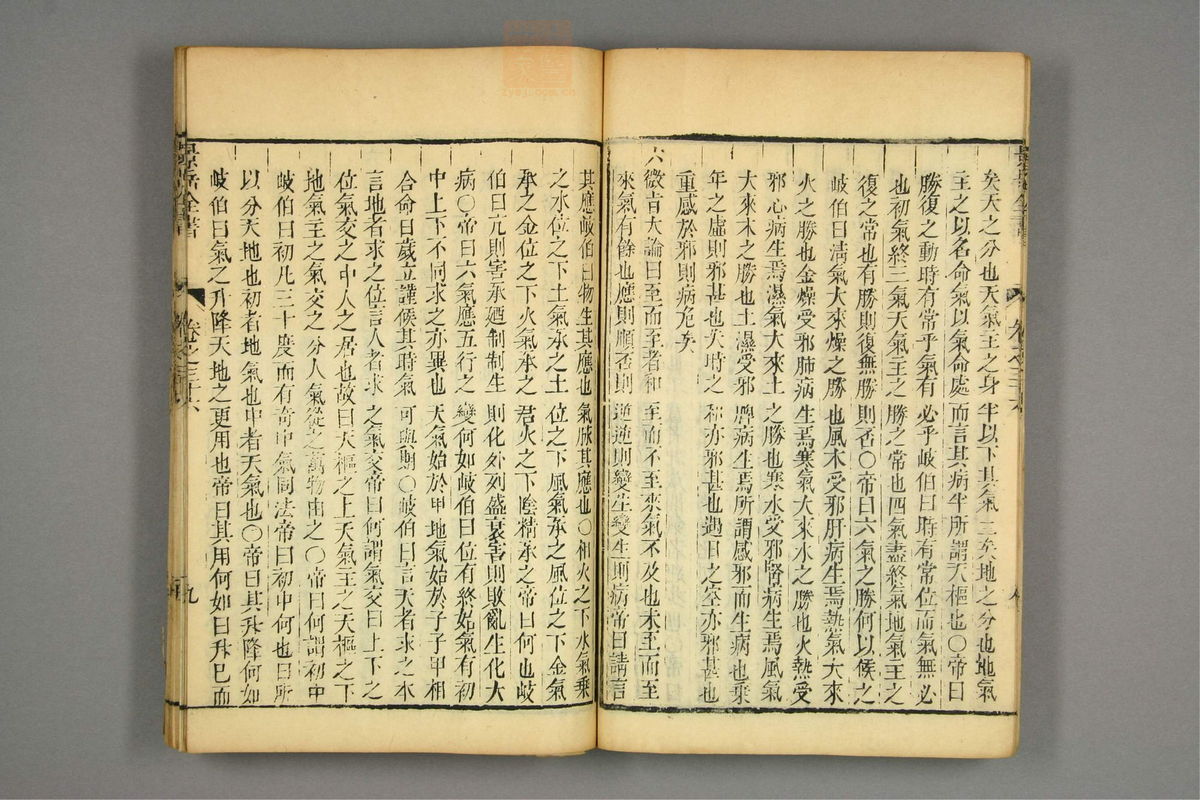 矣天之分也天氣主之身半以下其氣三矣地之分也地氣
主之以名命氣以氣命處而言其病半所謂天樞也○帝曰
勝復之動時有常乎氣有必乎岐伯曰時有常位而氣無必
也初氣終三氣天氣主之勝之常也四氣盡終氣地氣主之
復之常也有勝則復無勝則否○帝曰六氣之勝何以候之
岐伯曰清氣大來燥之勝也風木受邪肝病生焉熱氣大來
火之勝也金燥受邪肺病生焉寒氣大來水之勝也火熱受
邪心病生焉濕氣大來土之勝也寒水受邪腎病生焉風氣
大來木之勝也土濕受邪脾病生焉所謂感邪而生病也乗
年之虛則邪甚也失時之和亦邪甚也遇月之空亦邪甚也
重感於邪則病危矣
六微旨大論曰至而至者和至而不至來氣不及也未至而至
來氣有餘也應則順否則逆逆則變生變生則病帝曰請言
其應岐伯曰物生其應也氣脉其應也○相火之下水氣乗
之水位之下土氣承之土位之下風氣承之風位之下金氣
承之金位之下火氣承之君火之下陰精承之帝曰何也岐
伯曰亢則害承廼制制生則化外列盛衰害則敗亂生化大
病○帝曰六氣應五行之變何如岐伯曰位有終始氣有初
中上下不同求之亦異也天氣始於甲地氣始於子子甲相
合命曰歲立謹候其時氣可與期○岐伯曰言天者求之本
言地者求之位言人者求之氣交帝曰何謂氣交曰上下之
位氣交之中人之居也故曰天樞之上天氣主之天樞之下
地氣主之氣交之分人氣從之萬物由之○帝曰何謂初中
岐伯曰初凡三十度而有奇中氣同法帝曰初中何也曰所
以分天地也初者地氣也中者天氣也○帝曰其升降何如
岐伯曰氣之升降天地之更用也帝曰其用何如曰升巳而
景岳全書
卷之三六
九